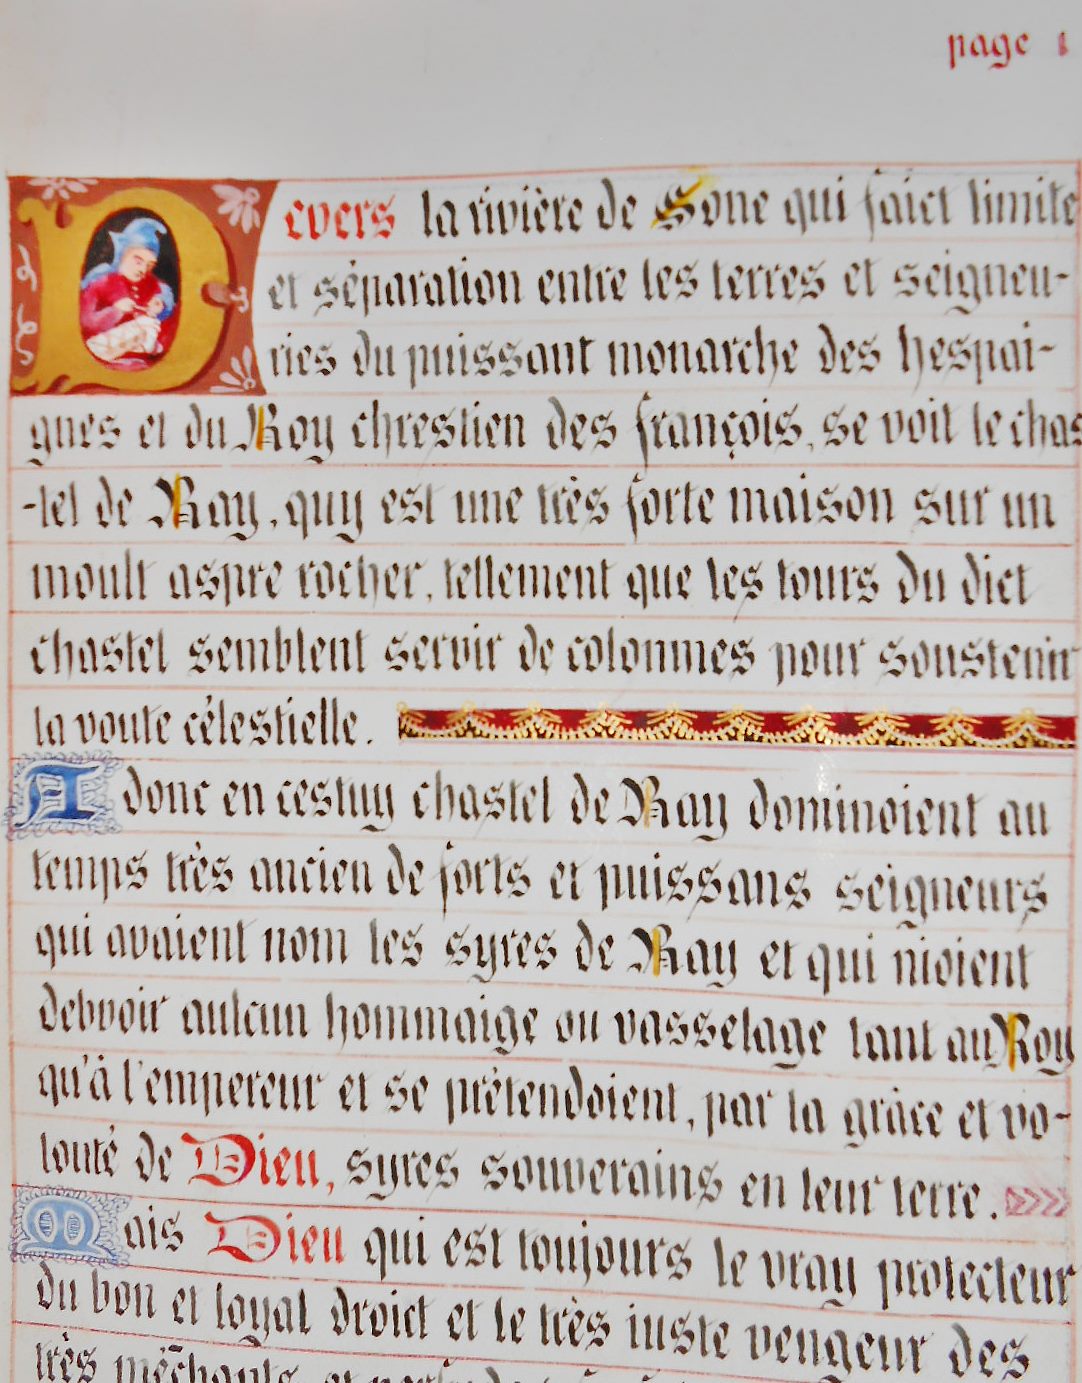 page 1
Devers la rivière de Sone qui faict limite
et séparation entre les terres et seigneu-
ries du puissant monarche des hespai-
gnes et du Roy chrestien des françois, se voit le chas
-tel de Ray, quy est une très forte maison sur un
moult aspre rocher, tellement que les tours du dict
chastel semblent servir de colonnes pour soustenir
la voute célestielle.
Adonc en cestuy chastel de Ray dominoient au
temps très ancien de forts et puissans seigneurs
qui avaient nom les syres de Ray et qui nioient
debvoir aulcun hommaige ou vasselage tant au Roy
qu'à l'empereur et se prétendoient, par la grâce et vo-
lonté de Dieu, syres souverains en leur terre.
Mais Dieu qui est toujours le vray protecteur
du bon et loyal droict et le très iuste vengeur des
très